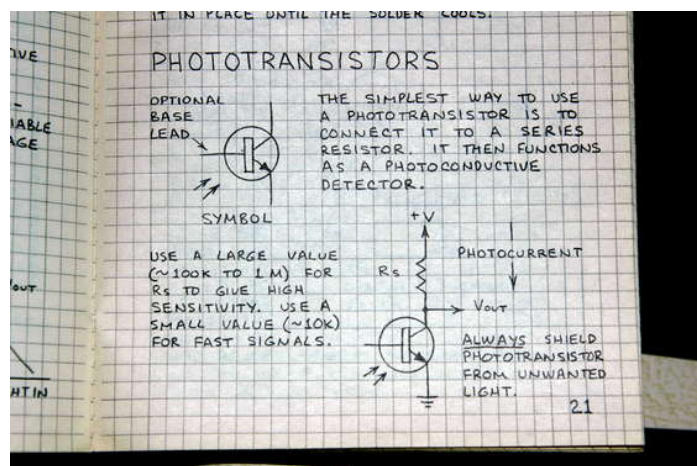 IT IN PLACE UNTIL THE SOLDER COOLS.
PHOTOTRANSISTORS
OPTIONAL
BASE
LEAD
SYMBOL
THE SIMPLEST WAY TO USE
A PHOTOTRANSISTOR IS TO
CONNECT IT TO A SERIES
RESISTOR. IT THEN FUNCTIONS
AS A PHOTOCONDUCTIVE
DETECTOR.
USE A LARGE VALUE
(~100K TO 1 M) FOR
RS TO GIVE HIGH
SENSITIVITY. USE A
SMALL VALUE (~10K)
FOR FAST SIGNALS.
+V
RS
PHOTOCURRENT
VOUT
ALWAYS SHIELD
PHOTOTRANSISTOR
FROM UNWANTED
LIGHT.
21